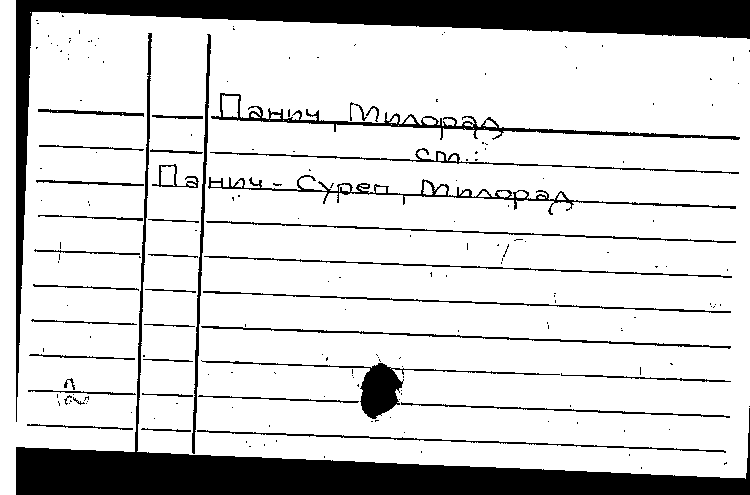 Панич, Милорад
см.:
Панич-Суреп, Милорад